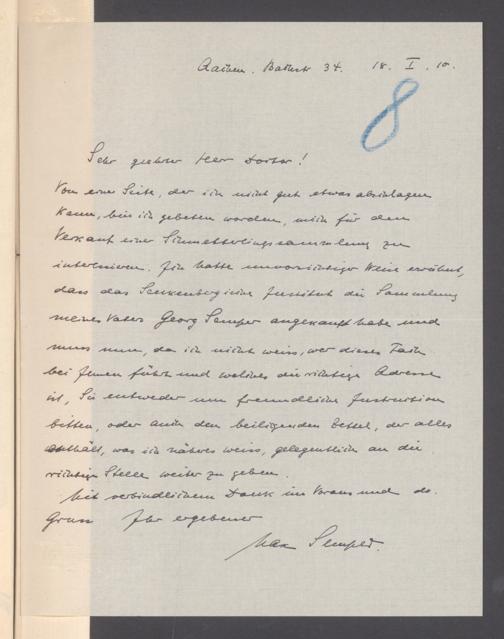 Aachen. Bachstr 34. 18. I. 10.
8
Sehr geehrter Herr Doctor!
Von einer Seite, der ich nicht gut etwas abschlagen
kann, bin ich gebeten worden, mich für den
Verkauf einer Schmetterlingssammlung zu
interessieren. Ich hatte unvorsichtiger Weise erwähnt,
dass das Senckenbergische Institut die Sammlung
meines Vaters Georg Semper angekauft habe und
muss nun, da ich nicht weiss, wer dieses Fach
bei Ihnen führt und welches die richtige Adresse
ist, Sie entweder um freundliche Instruktion
bitten, oder auch den beiliegenden Zettel, der alles
enthält, was ich näheres weiss, gelegentlich an die
richtige Stelle weiter zu geben.
Mit verbindlichem Dank im Voraus und do.
Gruss Ihr ergebener
Max Semper.